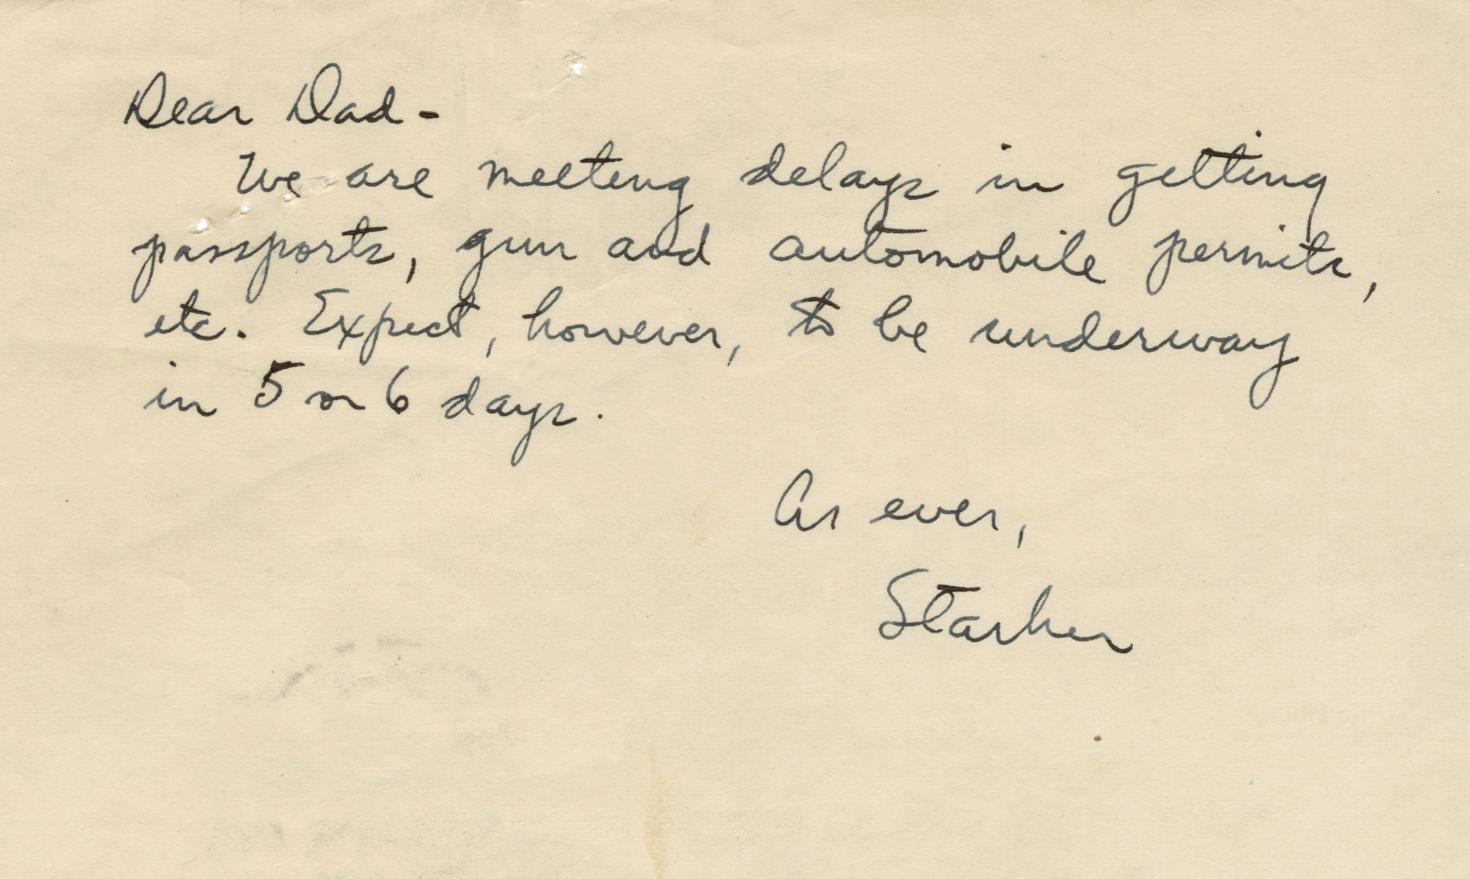 Dear Dad -
We are meeting delays in getting
passports, gun and automobile permits,
etc. Expect, however, to be underway
in 5 or 6 days.
As ever,
Starker